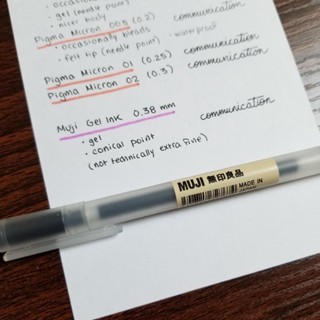 occasionally
• gel (needle point)
• nicer body
Pigma Micron 005 (0.2) communication
• occasionally bleeds • waterproof
• felt tip (needle point)
Pigma Micron 01 (0.25) communication
Pigma Micron 02 (0.3) communication
Muji Gel Ink 0.38 mm communication
• gel
• conical point
(not technically extra fine)
MUJI 無印良品
MADE IN
JAPAN